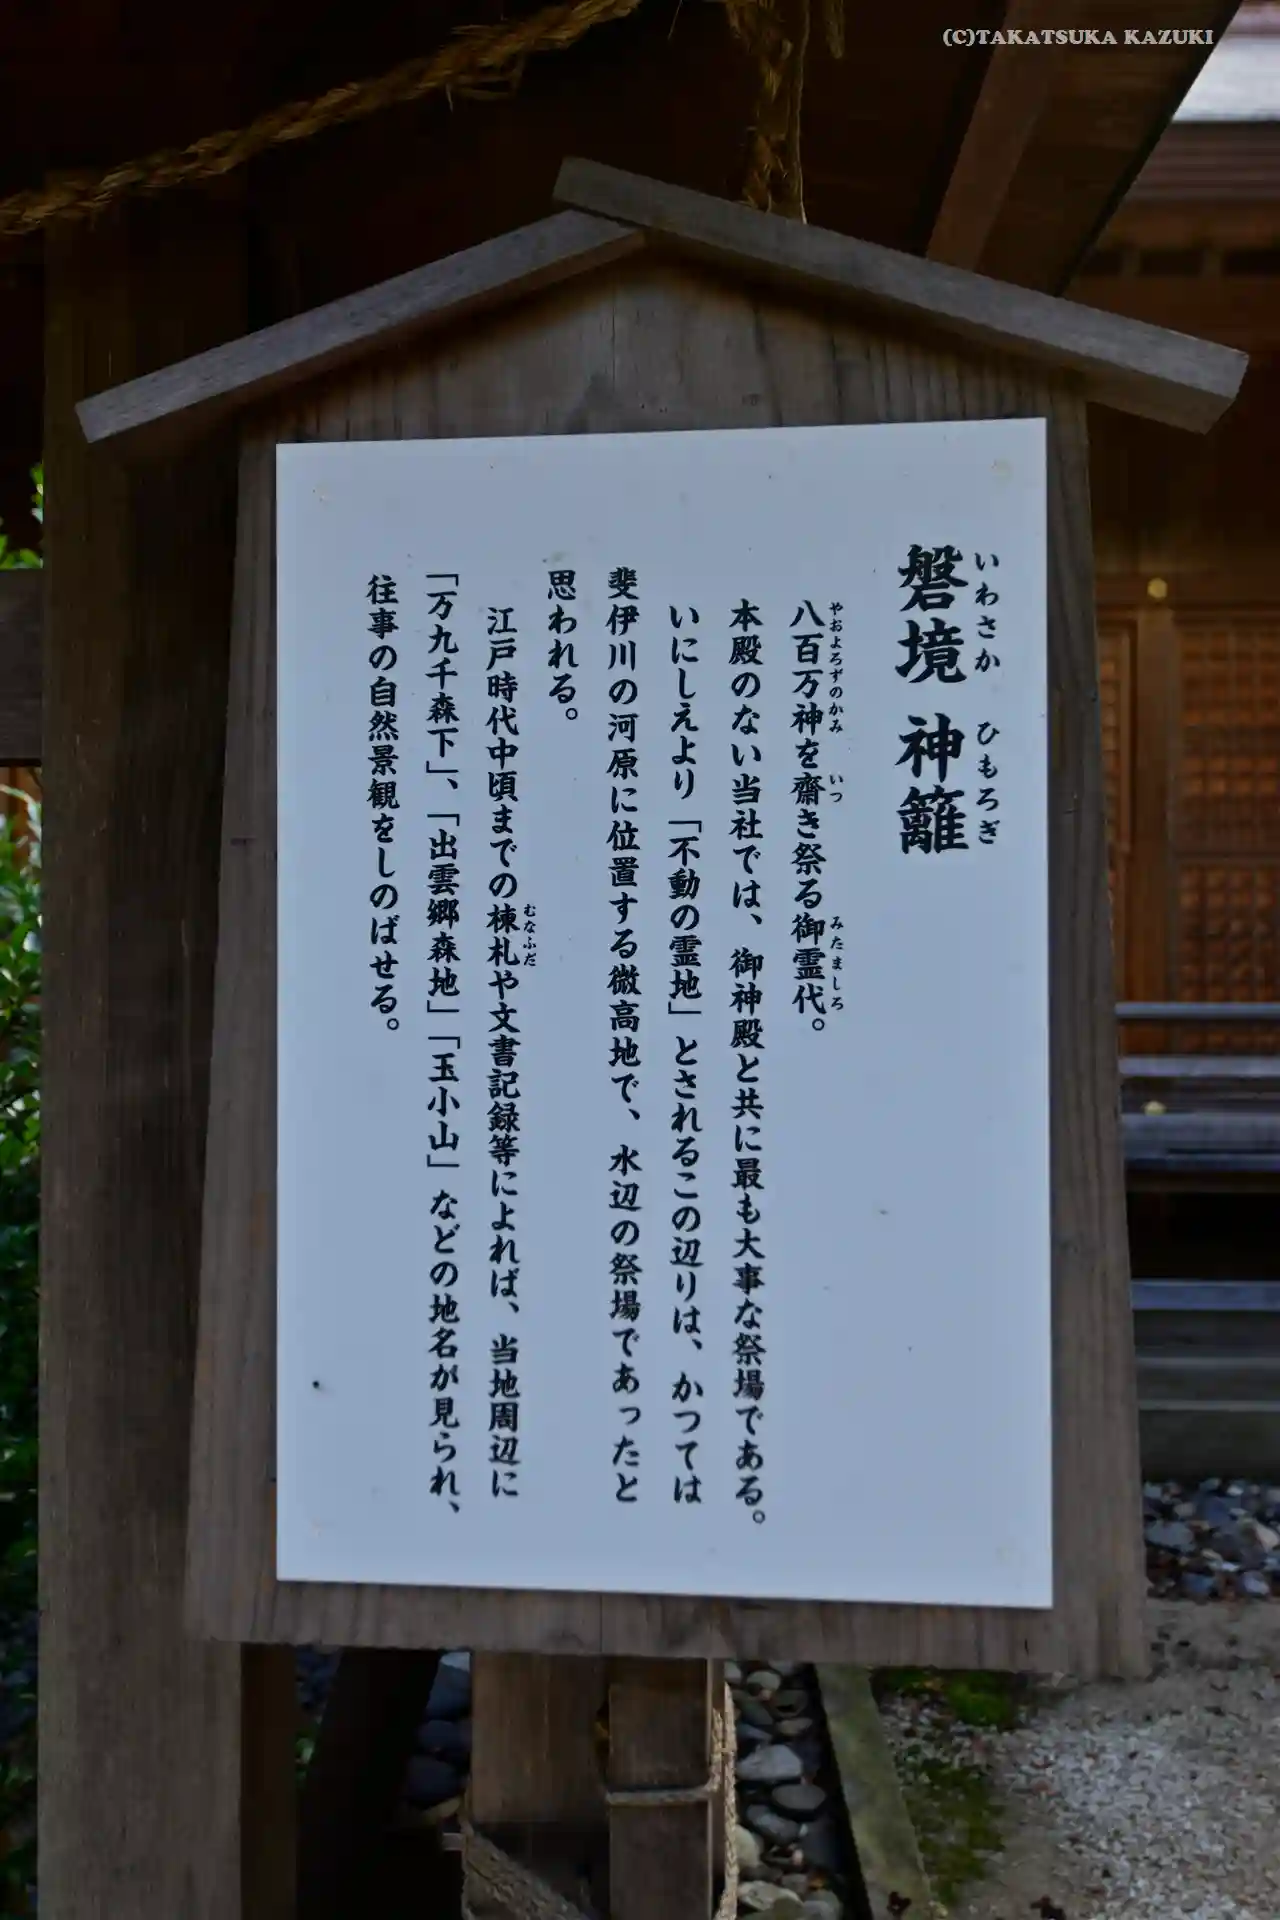 (C)TAKATSUKA KAZUKI
磐境 神籬
いわさか ひもろぎ
八百万神を齋き祭る御霊代。
やおよろずのかみ いつ みたましろ
本殿のない当社では、御神殿と共に最も大事な祭場である。
いにしえより「不動の霊地」とされるこの辺りは、かつては
斐伊川の河原に位置する微高地で、水辺の祭場であったと
思われる。
江戸時代中頃までの棟札や文書記録等によれば、当地周辺に
むなふだ
「万九千森下」、「出雲郷森地」「玉小山」などの地名が見られ、
往事の自然景観をしのばせる。